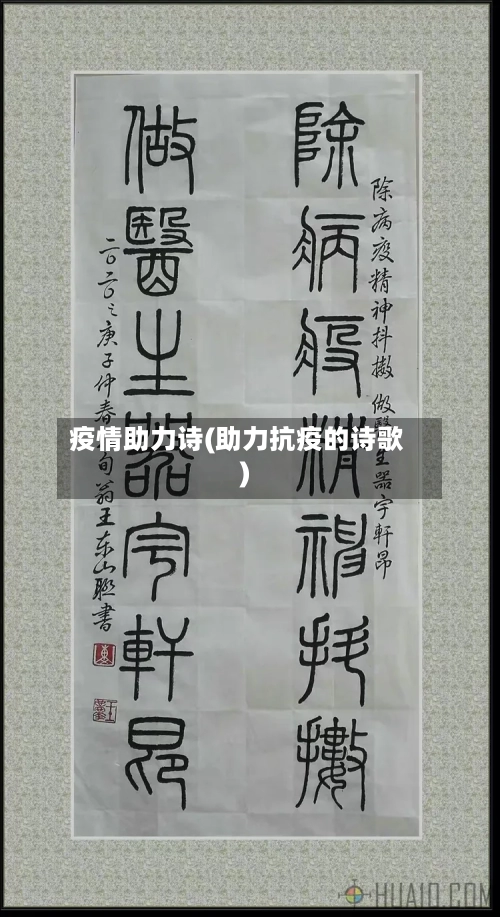 除病疫精神抖擻
除病疫精神抖擻 做醫生器宇軒昂
做醫生器宇軒昂
二〇二〇之庚子仲春旬翁王东山聯書
疫情助力诗(助力抗疫的诗歌
)
HUA10.COM